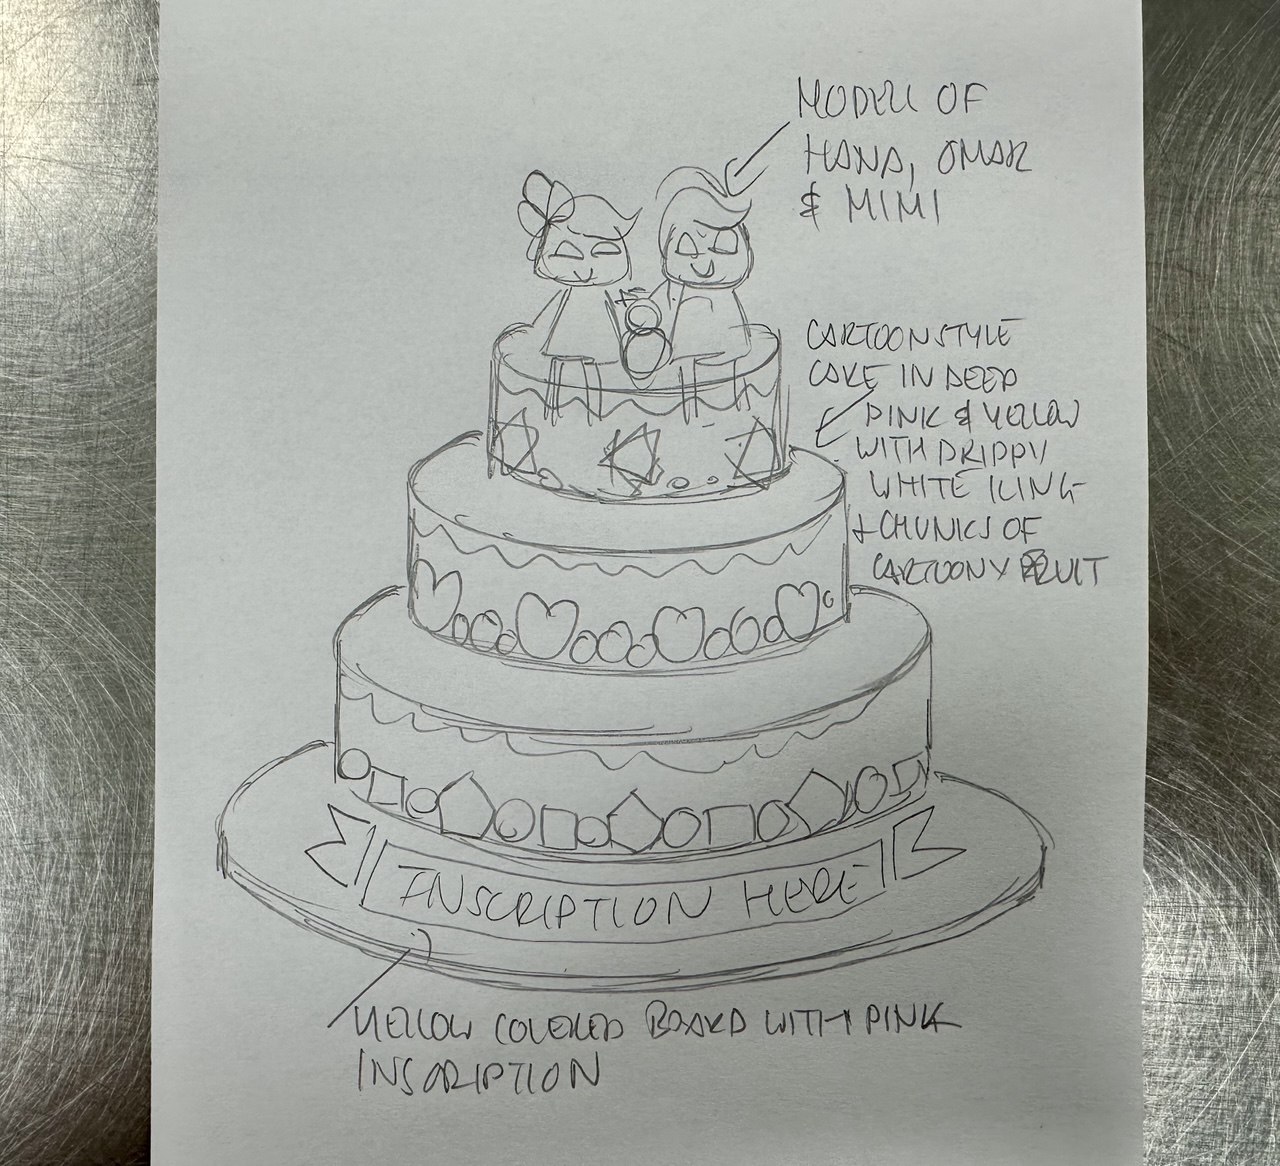 MODELL OF
HANA, OMAR
& MIMI
CARTOON STYLE
CAKE IN DEEP
PINK & YELLOW
WITH DRIPPY
WHITE ICING
+ CHUNKS OF
CARTOONY FRUIT
INSCRIPTION HERE
YELLOW COVERED BOARD WITH PINK
INSCRIPTION